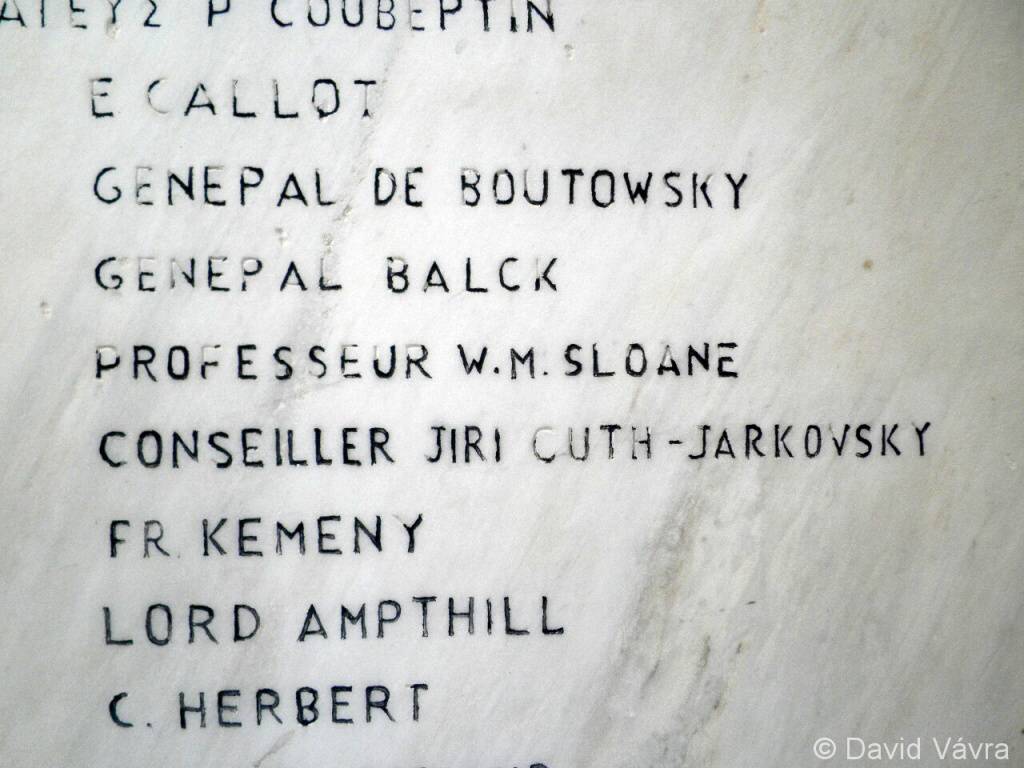 P COUBEPTIN
E CALLOT
GENEPAL DE BOUTOWSKY
GENEPAL BALCK
PROFESSEUR W.M. SLOANE
CONSEILLER JIRI GUTH-JARKOVSKY
FR. KEMENY
LORD AMPTHILL
C. HERBERT
© David Vávra